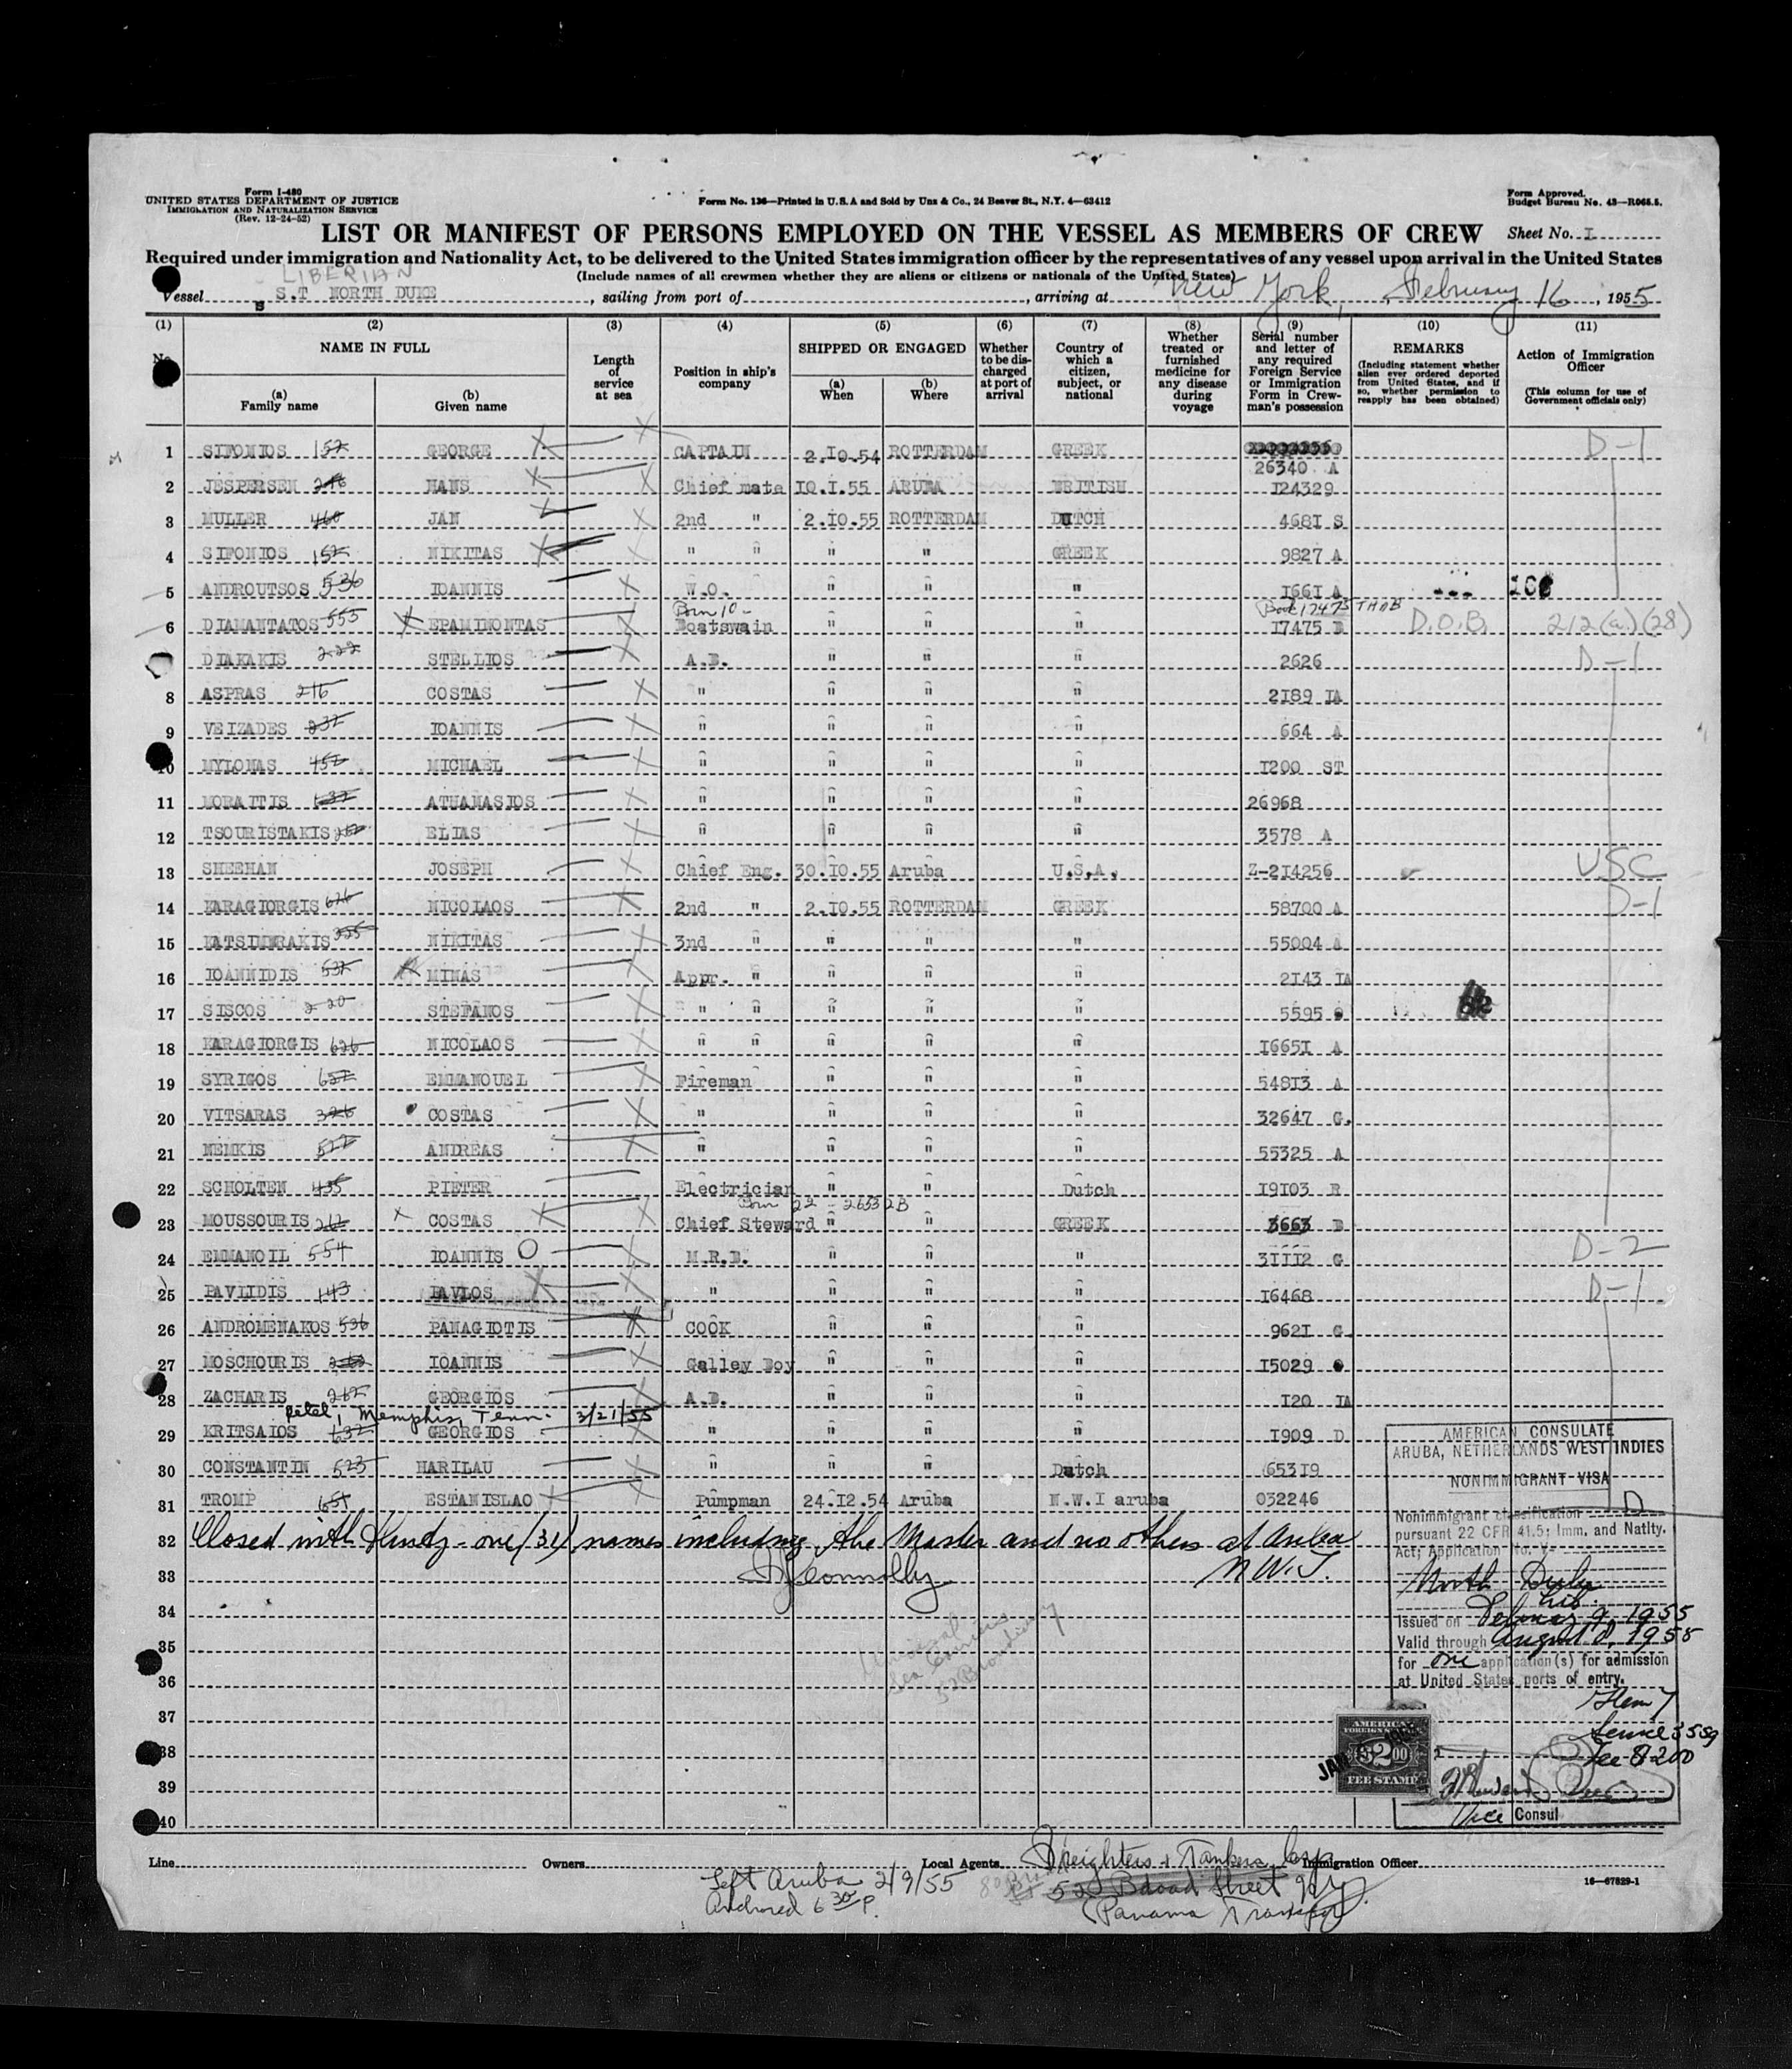 Form I-480
UNITED STATES DEPARTMENT OF JUSTICE
IMMIGRATION AND NATURALIZATION SERVICE
(Rev. 12-24-52)
Form No. 136—Printed in U.S.A and Sold by Unz & Co., 24 Beaver St., N.Y. 4—63412
Form Approved.
Budget Bureau No. 43—R065.5.
LIST OR MANIFEST OF PERSONS EMPLOYED ON THE VESSEL AS MEMBERS OF CREW Sheet No. I
Required under immigration and Nationality Act, to be delivered to the United States immigration officer by the representatives of any vessel upon arrival in the United States
(Include names of all crewmen whether they are aliens or citizens or nationals of the United States)
LIBERIAN
Vessel S.T NORTH DUKE, sailing from port of, arriving at New York, February 16, 1955
(1) (2) (3) (4) (5) (6) (7) (8) (9) (10) (11)
No. NAME IN FULL Length of service at sea Position in ship's company SHIPPED OR ENGAGED Whether to be discharged at port of arrival Country of which a citizen, subject, or national Whether treated or furnished medicine for any disease during voyage Serial number and letter of any required Foreign Service or Immigration Form in Crewman's possession REMARKS (Including statement whether alien ever ordered deported from United States, and if so, whether permission to reapply has been obtained) Action of Immigration Officer (This column for use of Government officials only)
(a) Family name (b) Given name (a) When (b) Where
1 SIFONIOS 152 GEORGE CAPTAIN 2.10.54 ROTTERDAM GREEK 26340 A D-1
2 JESPERSEN 216 HANS Chief mate 10.1.55 ARUBA BRITISH 124329
3 MULLER 460 JAN 2nd " 2.10.55 ROTTERDAM DUTCH 4681 S
4 SIFONIOS 152 NIKITAS " " " " GREEK 9827 A
5 ANDROUTSOS 536 IOANNIS W.O. " " " 1661 A
Born 10- Book 17475
6 DIAMANTATOS 555 EPAMINONTAS Boatswain " " " 17475 B D.O.B. 212(a)(28)
DIAKAKIS 222 STELLIOS A.B. " " " 2626 D-1
8 ASPRAS 216 COSTAS " " " " 2189 IA
9 VEIZADES 232 IOANNIS " " " " 664 A
10 MYLONAS 452 MICHAEL " " " " 1200 ST
11 MORAITIS 632 ATHANASIOS " " " " 26968
12 TSOURISTAKIS 262 ELIAS " " " " 3578 A
13 SHEEHAN JOSEPH Chief Eng. 30.10.55 Aruba U.S.A. Z-214256 USC
14 KARAGIORGIS 626 NICOLAOS 2nd " 2.10.55 ROTTERDAM GREEK 58700 A D-1
15 KATSIMBRAKIS NIKITAS 3nd " " " " 55004 A
16 IOANNIDIS 532 MINAS Appr. " " " " 2143 IA
17 SISCOS 220 STEFANOS " " " " " 5595
18 KARAGIORGIS 626 NICOLAOS " " " " " 16651 A
19 SYRIGOS 652 EMMANOUEL Fireman " " " 54813 A
20 VITSARAS 326 COSTAS " " " " 32647 G.
21 NEMKIS 522 ANDREAS " " " " 55325 A
22 SCHOLTEN 435 PIETER Electrician " " Dutch 19103 R
Born 22 26532B
23 MOUSSOURIS 262 COSTAS Chief Steward " " GREEK 3663 B
24 EMMANOIL 554 IOANNIS M.R.B. " " " 31112 G D-2
25 PAVLIDIS 143 PAVLOS " " " " 16468 D-1
26 ANDROMENAKOS 536 PANAGIOTIS COOK " " " 9621 G
27 MOSCHOURIS IOANNIS Galley Boy " " " 15029
28 ZACHARIS 262 GEORGIOS A.B. " " " 120 IA
Memphis, Tenn. 3/21/55
29 KRITSAIOS 632 GEORGIOS " " " " 1909 D
30 CONSTANTIN 523 HARILAU " " " Dutch 65319
31 TROMP 651 ESTANISLAO Pumpman 24.12.54 Aruba N.W.I aruba 032246
32 Closed with thirty-one (31) names including the Master and no others at Aruba
33 Connolly N.W.I.
34
35
36
37
38
39
40
AMERICAN CONSULATE
ARUBA, NETHERLANDS WEST INDIES
NONIMMIGRANT VISA
Nonimmigrant classification D
pursuant 22 CFR 41.5; Imm. and Natlty.
Act; Application No. V-
North Duke
Lib.
Issued on February 9, 1955
Valid through August 8, 1955
for one application(s) for admission
at United States ports of entry.
Item 7
Service 3589
Fee $2.00
AMERICAN
FOREIGN SERVICE
$2.00
FEE STAMP
Vice Consul
Line Owners Local Agents Freighters & Tankers Immigration Officer
Left Aruba 2/9/55 52 Broad Street
Anchored 6 30 P. Panama Transport
16—67829-1